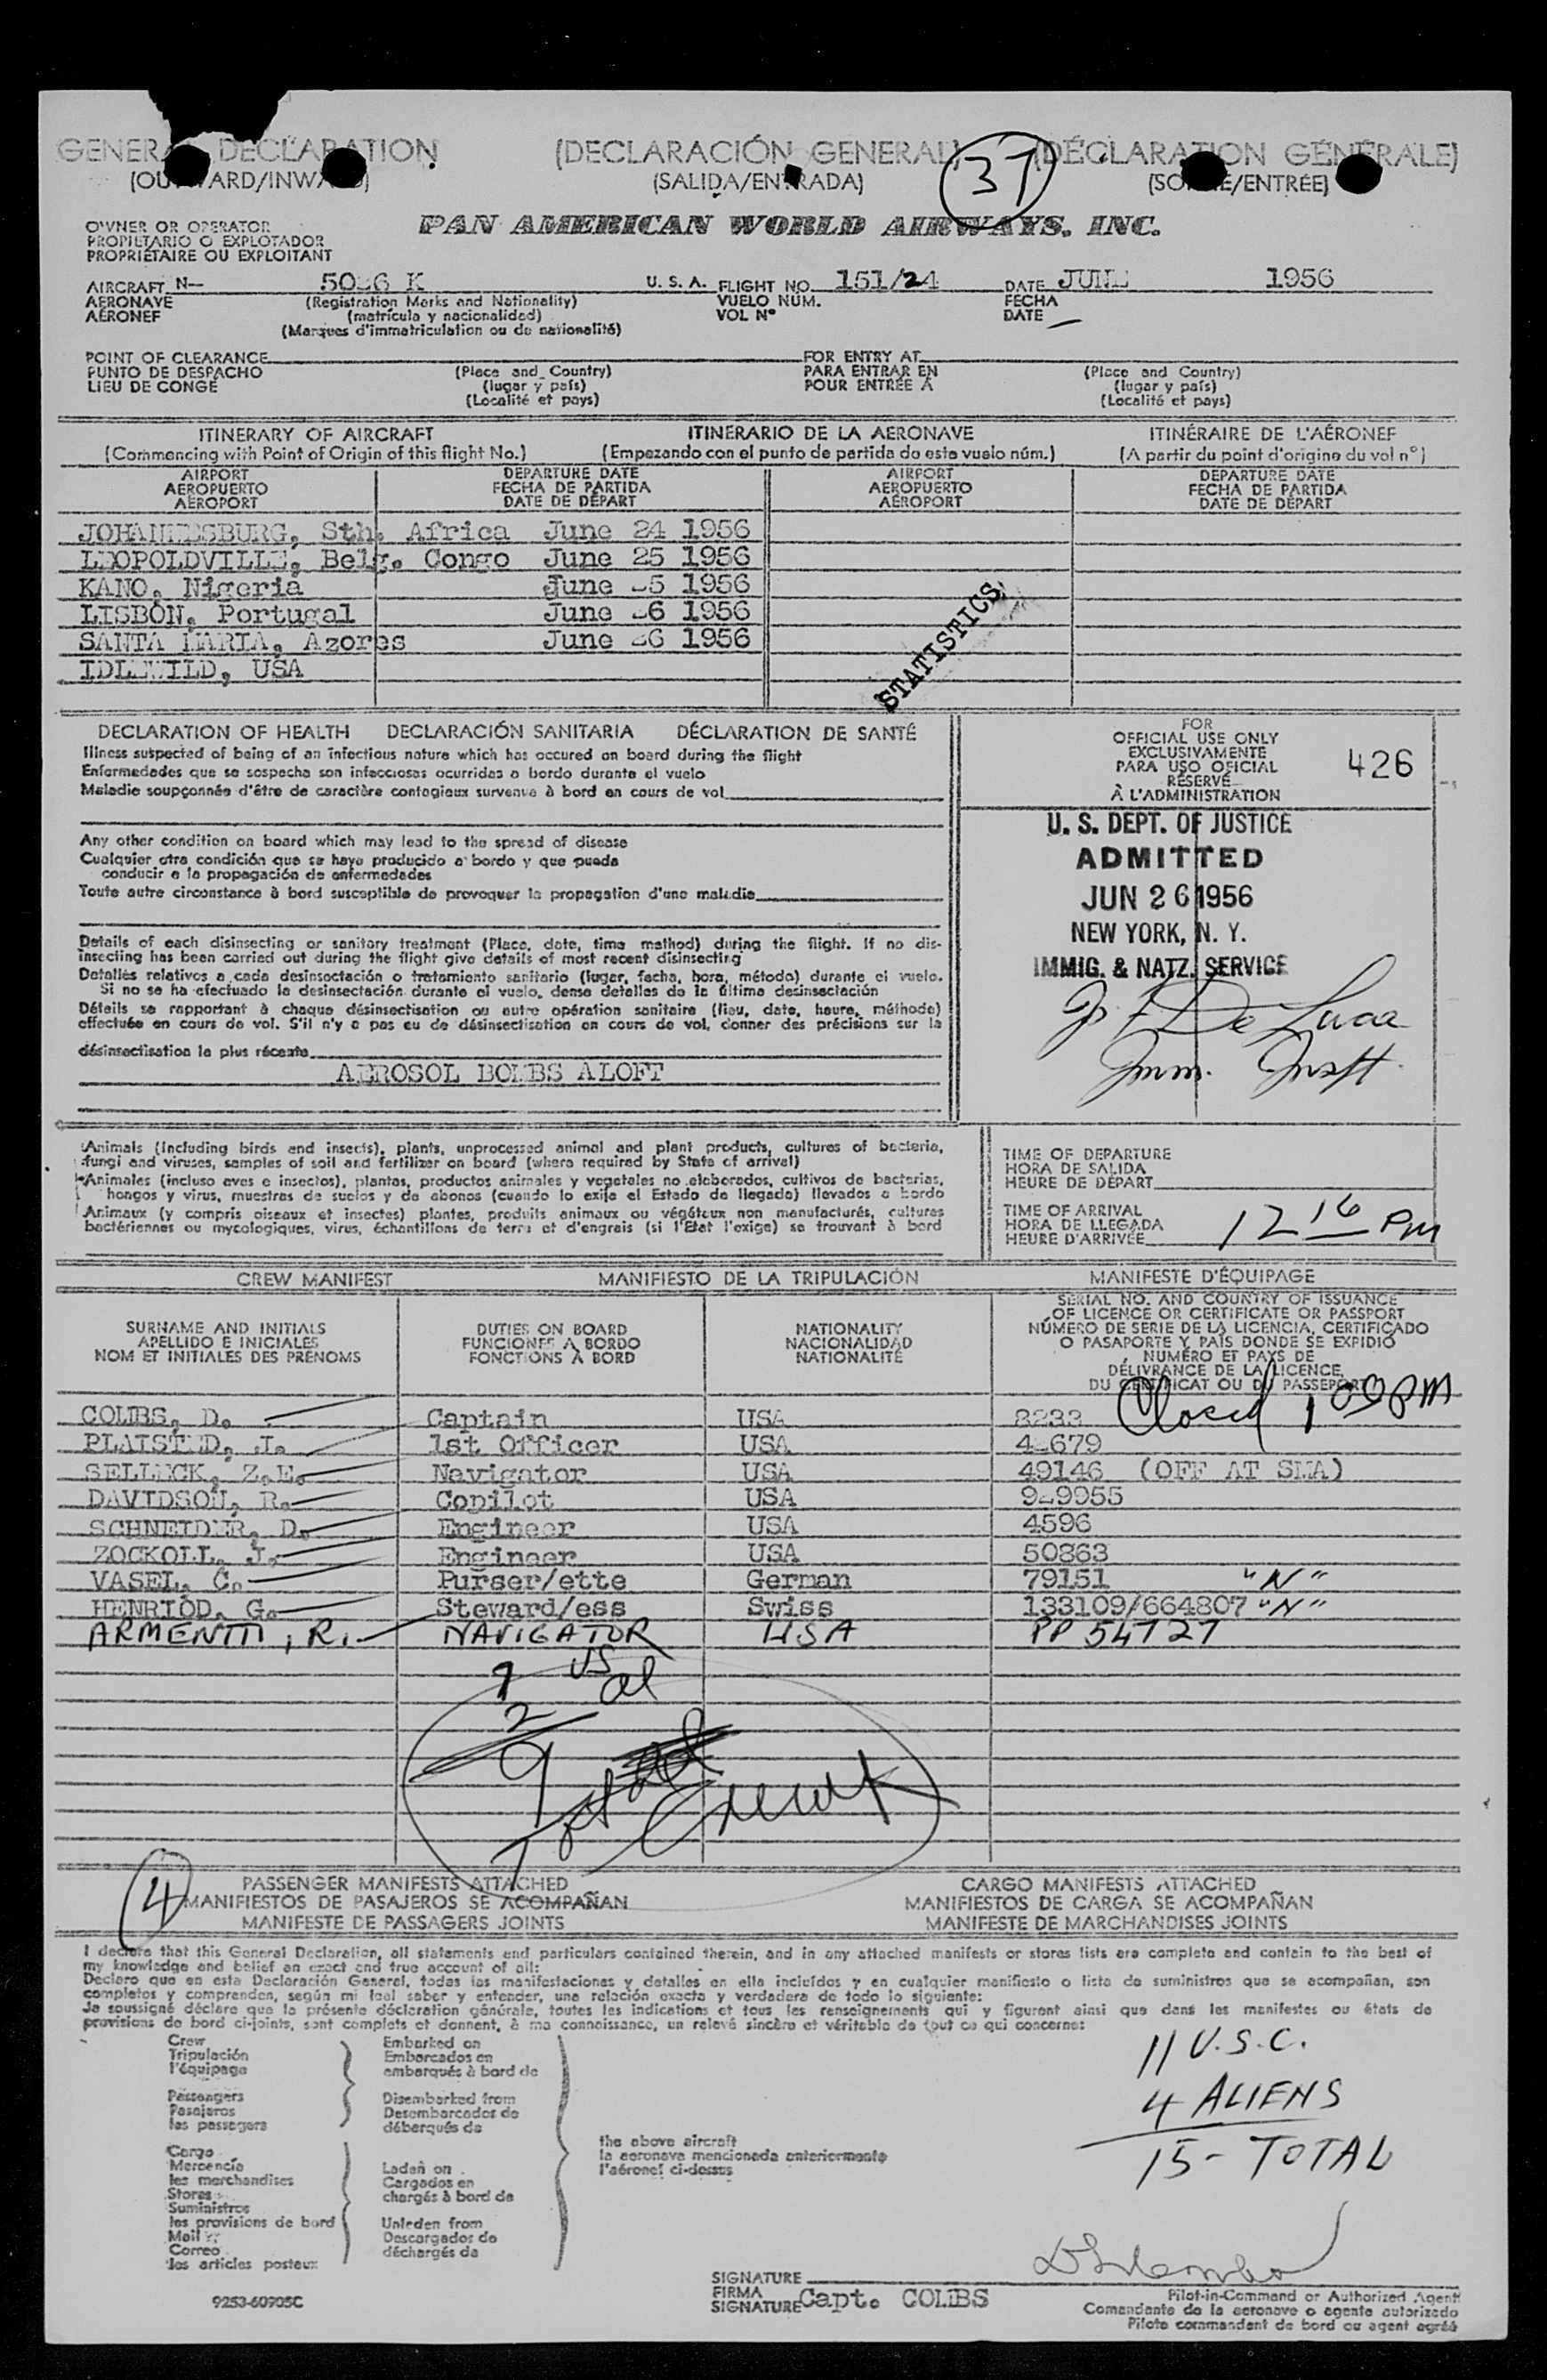 GENERAL DECLARATION (DECLARACIÓN GENERAL) (DÉCLARATION GÉNÉRALE)
(OUTWARD/INWARD) (SALIDA/ENTRADA) 37 (SORTIE/ENTRÉE)
OWNER OR OPERATOR
PROPIETARIO O EXPLOTADOR
PROPRIÉTAIRE OU EXPLOITANT
PAN AMERICAN WORLD AIRWAYS, INC.
AIRCRAFT N— K U. S. A. FLIGHT NO. 151/24 DATE JUNE 1956
AERONAVE (Registration Marks and Nationality) VUELO NÚM. FECHA
AÉRONEF (matrícula y nacionalidad) VOL Nº DATE
(Marques d'immatriculation ou de nationalité)
POINT OF CLEARANCE FOR ENTRY AT
PUNTO DE DESPACHO (Place and Country) PARA ENTRAR EN (Place and Country)
LIEU DE CONGÉ (lugar y país) POUR ENTRÉE À (lugar y país)
(Localité et pays) (Localité et pays)
ITINERARY OF AIRCRAFT ITINERARIO DE LA AERONAVE ITINÉRAIRE DE L'AÉRONEF
(Commencing with Point of Origin of this flight No.) (Empezando con el punto de partida de este vuelo núm.) (A partir du point d'origine du vol nº)
AIRPORT DEPARTURE DATE AIRPORT DEPARTURE DATE
AEROPUERTO FECHA DE PARTIDA AEROPUERTO FECHA DE PARTIDA
AÉROPORT DATE DE DÉPART AÉROPORT DATE DE DÉPART
JOHANNESBURG, Sth. Africa June 24 1956
LEOPOLDVILLE, Belg. Congo June 25 1956
KANO, Nigeria June 1956
LISBON, Portugal June 1956
SANTA MARIA, Azores June 1956
IDLEWILD, USA
STATISTICS
DECLARATION OF HEALTH DECLARACIÓN SANITARIA DÉCLARATION DE SANTÉ
Illness suspected of being of an infectious nature which has occured on board during the flight
Enfermedades que se sospecha son infecciosas ocurridas a bordo durante el vuelo
Maladie soupçonnée d'être de caractère contagieux survenue à bord en cours de vol
Any other condition on board which may lead to the spread of disease
Cualquier otra condición que se haya producido a bordo y que pueda
conducir a la propagación de enfermedades
Toute autre circonstance à bord susceptible de provoquer la propagation d'une maladie
Details of each disinsecting or sanitary treatment (Place, date, time method) during the flight. If no dis-
insecting has been carried out during the flight give details of most recent disinsecting
Detalles relativos a cada desinsectación o tratamiento sanitario (lugar, fecha, hora, método) durante el vuelo.
Si no se ha efectuado la desinsectación durante el vuelo, dense detalles de la última desinsectación
Détails se rapportant à chaque désinsectisation ou autre opération sanitaire (lieu, date, heure, méthode)
effectuée en cours de vol. S'il n'y a pas eu de désinsectisation en cours de vol, donner des précisions sur la
désinsectisation la plus récente
AEROSOL BOMBS ALOFT
FOR
OFFICIAL USE ONLY
EXCLUSIVAMENTE
PARA USO OFICIAL
RÉSERVÉ
À L'ADMINISTRATION
426
U. S. DEPT. OF JUSTICE
ADMITTED
JUN 26 1956
NEW YORK, N. Y.
IMMIG. & NATZ. SERVICE
De Luca
Imm. Inspt.
Animals (including birds and insects), plants, unprocessed animal and plant products, cultures of bacteria,
fungi and viruses, samples of soil and fertilizer on board (where required by State of arrival)
Animales (incluso aves e insectos), plantas, productos animales y vegetales no elaborados, cultivos de bacterias,
hongos y virus, muestras de suelos y de abonos (cuando lo exija el Estado de llegada) llevados a bordo
Animaux (y compris oiseaux et insectes) plantes, produits animaux ou végétaux non manufacturés, cultures
bactériennes ou mycologiques, virus, échantillons de terre et d'engrais (si l'État l'exige) se trouvant à bord
TIME OF DEPARTURE
HORA DE SALIDA
HEURE DE DÉPART
TIME OF ARRIVAL
HORA DE LLEGADA
HEURE D'ARRIVÉE 12 16 PM
CREW MANIFEST MANIFIESTO DE LA TRIPULACIÓN MANIFESTE D'ÉQUIPAGE
SURNAME AND INITIALS
APELLIDO E INICIALES
NOM ET INITIALES DES PRÉNOMS
DUTIES ON BOARD
FUNCIONES A BORDO
FONCTIONS À BORD
NATIONALITY
NACIONALIDAD
NATIONALITÉ
SERIAL NO. AND COUNTRY OF ISSUANCE
OF LICENCE OR CERTIFICATE OR PASSPORT
NÚMERO DE SERIE DE LA LICENCIA, CERTIFICADO
O PASAPORTE Y PAÍS DONDE SE EXPIDIÓ
NUMÉRO ET PAYS DE
DÉLIVRANCE DE LA LICENCE,
DU CERTIFICAT OU DU PASSEPORT
Closed 1 PM
COMBS, D. Captain USA 8233
PLAISTED, J. 1st Officer USA
SELLECK, Z.E. Navigator USA 49146 (OFF AT SMA)
DAVIDSON, R. Copilot USA
SCHNEIDER, D. Engineer USA 4596
ZOCKOLL, J. Engineer USA 50863
VASEL, C. Purser/ette German 79151 "N"
HENRIOD, G. Steward/ess Swiss 133109/664807 "N"
ARMENTI, R. NAVIGATOR USA PP 54727
7 US
2 al
9
Total Crew
4
PASSENGER MANIFESTS ATTACHED CARGO MANIFESTS ATTACHED
MANIFIESTOS DE PASAJEROS SE ACOMPAÑAN MANIFIESTOS DE CARGA SE ACOMPAÑAN
MANIFESTE DE PASSAGERS JOINTS MANIFESTE DE MARCHANDISES JOINTS
I declare that this General Declaration, all statements and particulars contained therein, and in any attached manifests or stores lists are complete and contain to the best of
my knowledge and belief an exact and true account of all:
Declaro que en esta Declaración General, todas las manifestaciones y detalles en ella incluídos y en cualquier manifiesto o lista de suministros que se acompañan, son
completos y comprenden, según mi leal saber y entender, una relación exacta y verdadera de todo lo siguiente:
Je soussigné déclare que la présente déclaration générale, toutes les indications et tous les renseignements qui y figurent ainsi que dans les manifestes ou états de
provisions de bord ci-joints, sont complets et donnent, à ma connaissance, un relevé sincère et véritable de tout ce qui concerne:
Crew
Tripulación
l'équipage
Passengers
Pasajeros
les passagers
Cargo
Mercancía
les marchandises
Stores
Suministros
les provisions de bord
Mail
Correo
les articles postaux
Embarked on
Embarcados en
embarqués à bord de
Disembarked from
Desembarcados de
débarqués de
Laden on
Cargados en
chargés à bord de
Unladen from
Descargados de
déchargés de
the above aircraft
la aeronave mencionada anteriormente
l'aéronef ci-dessus
11 U.S.C.
4 ALIENS
15 - TOTAL
SIGNATURE
FIRMA
SIGNATURE Capt. COMBS
Pilot-in-Command or Authorized Agent
Comandante de la aeronave o agente autorizado
Pilote commandant de bord ou agent agréé
9253-60905C